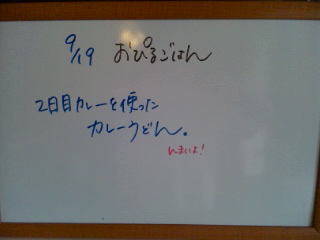 9/19 おひるごはん
2日目カレーを使った
カレーうどん。
んまいよ!